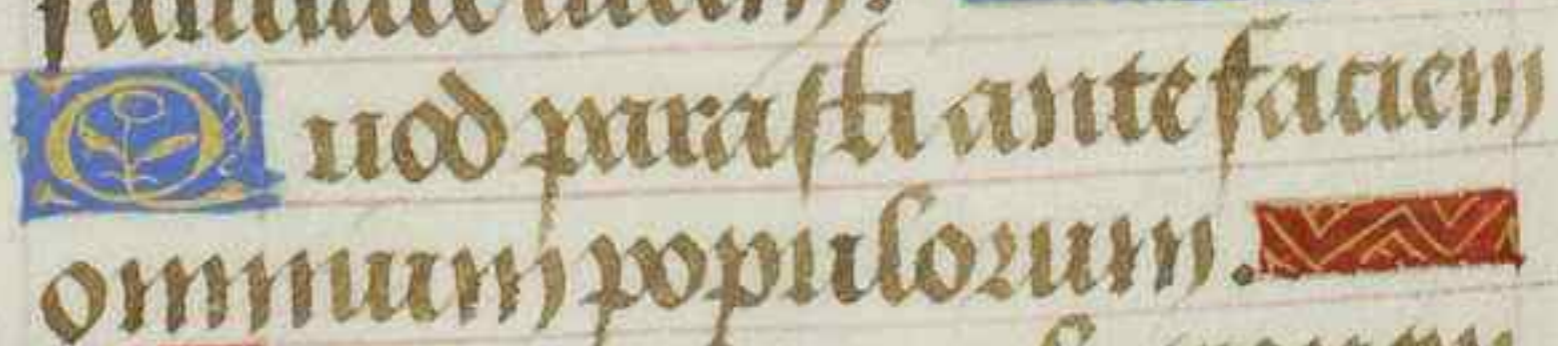 Quod parasti ante faciem
omnium populorum.